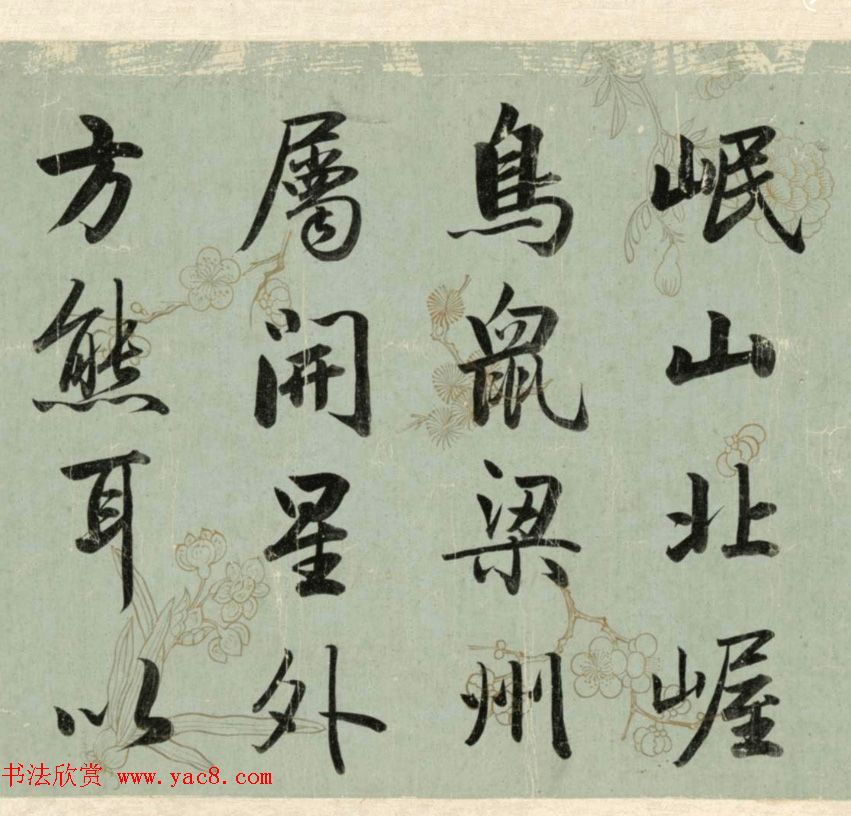 岷山北崌
鳥鼠梁州
屬開星外
方熊耳以
书法欣赏 www.yac8.com